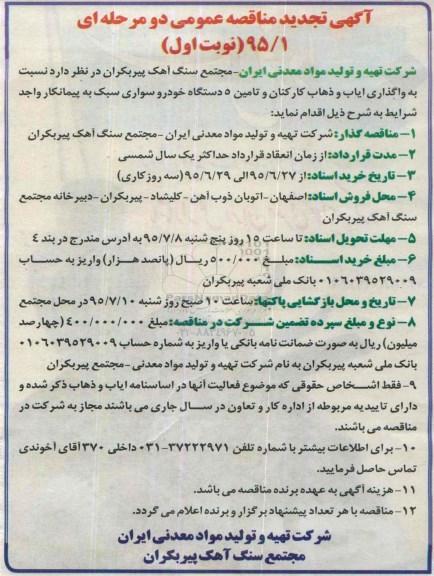 آگهی تجدید مناقصه عمومی دو مرحله ای
۹۵/۱ (نوبت اول)
شرکت تهیه و تولید مواد معدنی ایران-مجتمع سنگ آهک پیربکران در نظر دارد نسبت
به واگذاری ایاب و ذهاب کارکنان و تامین ۵ دستگاه خودرو سواری سبک به پیمانکار واجد
شرایط به شرح ذیل اقدام نماید:
۱- مناقصه گذار: شرکت تهیه و تولید مواد معدنی ایران -مجتمع سنگ آهک پیربکران
۲- مدت قرارداد: از زمان انعقاد قرارداد حداکثر یک سال شمسی
۳- تاریخ خرید اسناد: از ۹۵/۶/۲۷ الی ۹۵/۶/۲۹ (سه روز کاری)
۴- محل فروش اسناد: اصفهان -اتوبان ذوب آهن - کلیشاد - پیربکران -دبیرخانه مجتمع
سنگ آهک پیربکران
۵- مهلت تحویل اسناد: تا ساعت ۱۵ روز پنج شنبه ۹۵/۷/۸ به آدرس مندرج در بند ۴
۶- مبلغ خرید اسناد: مبلغ ۵۰۰/۰۰۰ ریال (پانصد هزار) واریز به حساب
۰۱۰۶۰۳۹۵۲۹۰۰۹ بانک ملی شعبه پیربکران
۷- تاریخ و محل بازگشایی پاکتها: ساعت ۱۰ صبح روز شنبه ۹۵/۷/۱۰ در محل مجتمع
۸- نوع و مبلغ سپرده تضمین شرکت در مناقصه: مبلغ ۴۰۰/۰۰۰/۰۰۰ (چهار صد
میلیون) ریال به صورت ضمانت نامه بانکی یا واریز به شماره حساب ۰۱۰۶۰۳۹۵۲۹۰۰۹
بانک ملی شعبه پیربکران به نام شرکت تهیه و تولید مواد معدنی-مجتمع پیربکران
۹- فقط اشخاص حقوقی که موضوع فعالیت آنها در اساسنامه ایاب و ذهاب ذکر شده و
دارای تاییدیه مربوطه از اداره کار و تعاون در سال جاری می باشند مجاز به شرکت در
مناقصه می باشند.
۱۰- برای اطلاعات بیشتر با شماره تلفن ۳۷۲۲۲۹۷۱-۰۳۱ داخلی ۳۷۰ آقای آخوندی
تماس حاصل فرمایید.
۱۱- هزینه آگهی به عهده برنده مناقصه می باشد.
۱۲- مناقصه با هر تعداد پیشنهاد برگزار و برنده اعلام می گردد.
شرکت تهیه و تولید مواد معدنی ایران
مجتمع سنگ آهک پیربکران